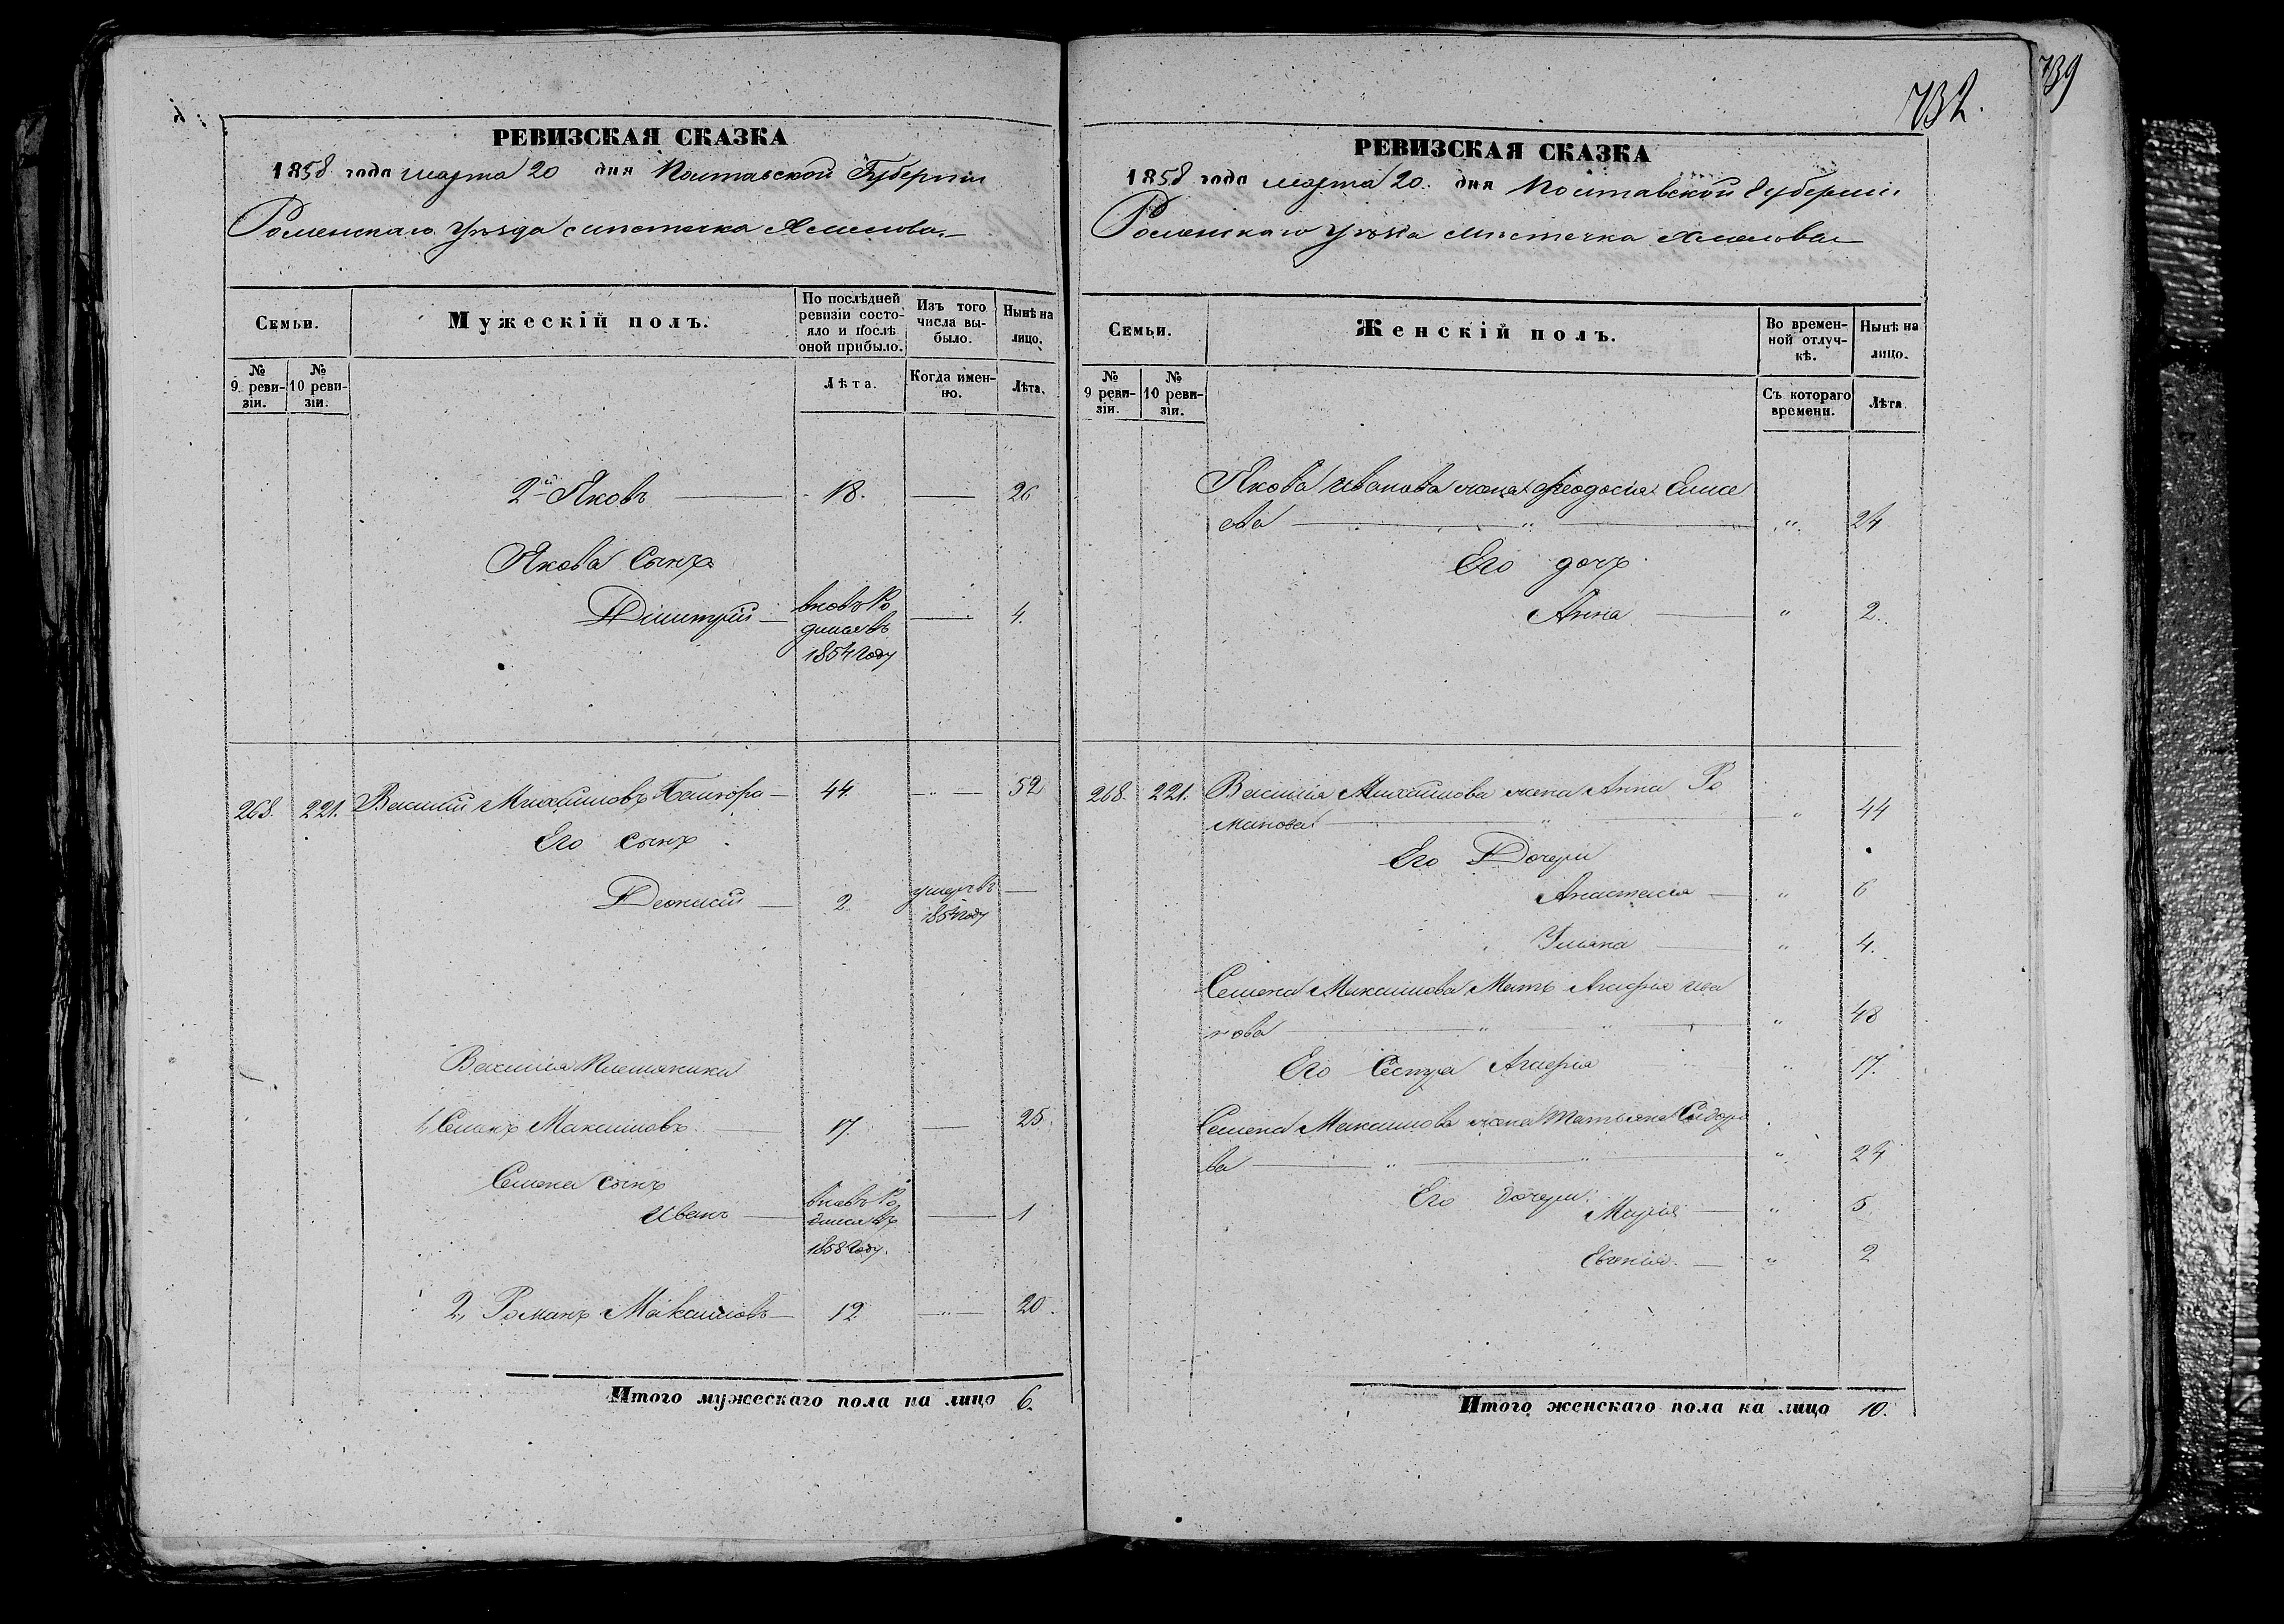 РЕВИЗСКАЯ СКАЗКА
1858 года марта 20 дня Полтавской Губернии
Роменскаго Уѣзда мѣстечка Хмелова
Семьи.
Мужескій полъ.
По послѣдней ревизіи состояло и послѣ оной прибыло.
Изъ того числа выбыло.
Нынѣ на лицо.
№ 9. ревизіи.
№ 10 ревизіи.
Лѣта.
Когда именно.
Лѣта.
2й Яковъ 18. 26
Якова сынъ
Димитрій вновь ро 4.
дился въ
1854 году
268. 221. Василий Михайловъ 44 52
Его сынъ
Деонисий 2 умеръ въ
1854 году
Василия племяники
1, Семенъ Максимовъ 17. 25.
Семена сынъ
Иванъ вновь ро 1
дился въ
1858 году.
2, Романъ Максимовъ 12 20.
Итого мужескаго пола на лицо 6.
732.
739
РЕВИЗСКАЯ СКАЗКА
1858 года марта 20. дня Полтавской губернии
Роменскаго Уѣзда мѣстечка Хмелова
Семьи.
Женскій полъ.
Во временной отлучкѣ.
Нынѣ на лицо.
№ 9 ревизіи.
№ 10 ревизіи.
Съ котораго времени.
Лѣта.
Якова Иванова жена Феодосия Елисе
ева " " 24
Его дочь
Анна " 2.
268. 221. Василия Михайлова жена Анна Ро
манова " " 44
Его Дочери
Анастасия " 6
Улияна " 4.
Семена Максимова Мать Агафия Ива
нова " " " 48
Его Сестра Агафия " 17.
Семена Максимова жена Татьяна Сидоро
ва " " " 24
Его дочери
Мария " 5
Евгения " 2
Итого женскаго пола на лицо 10.